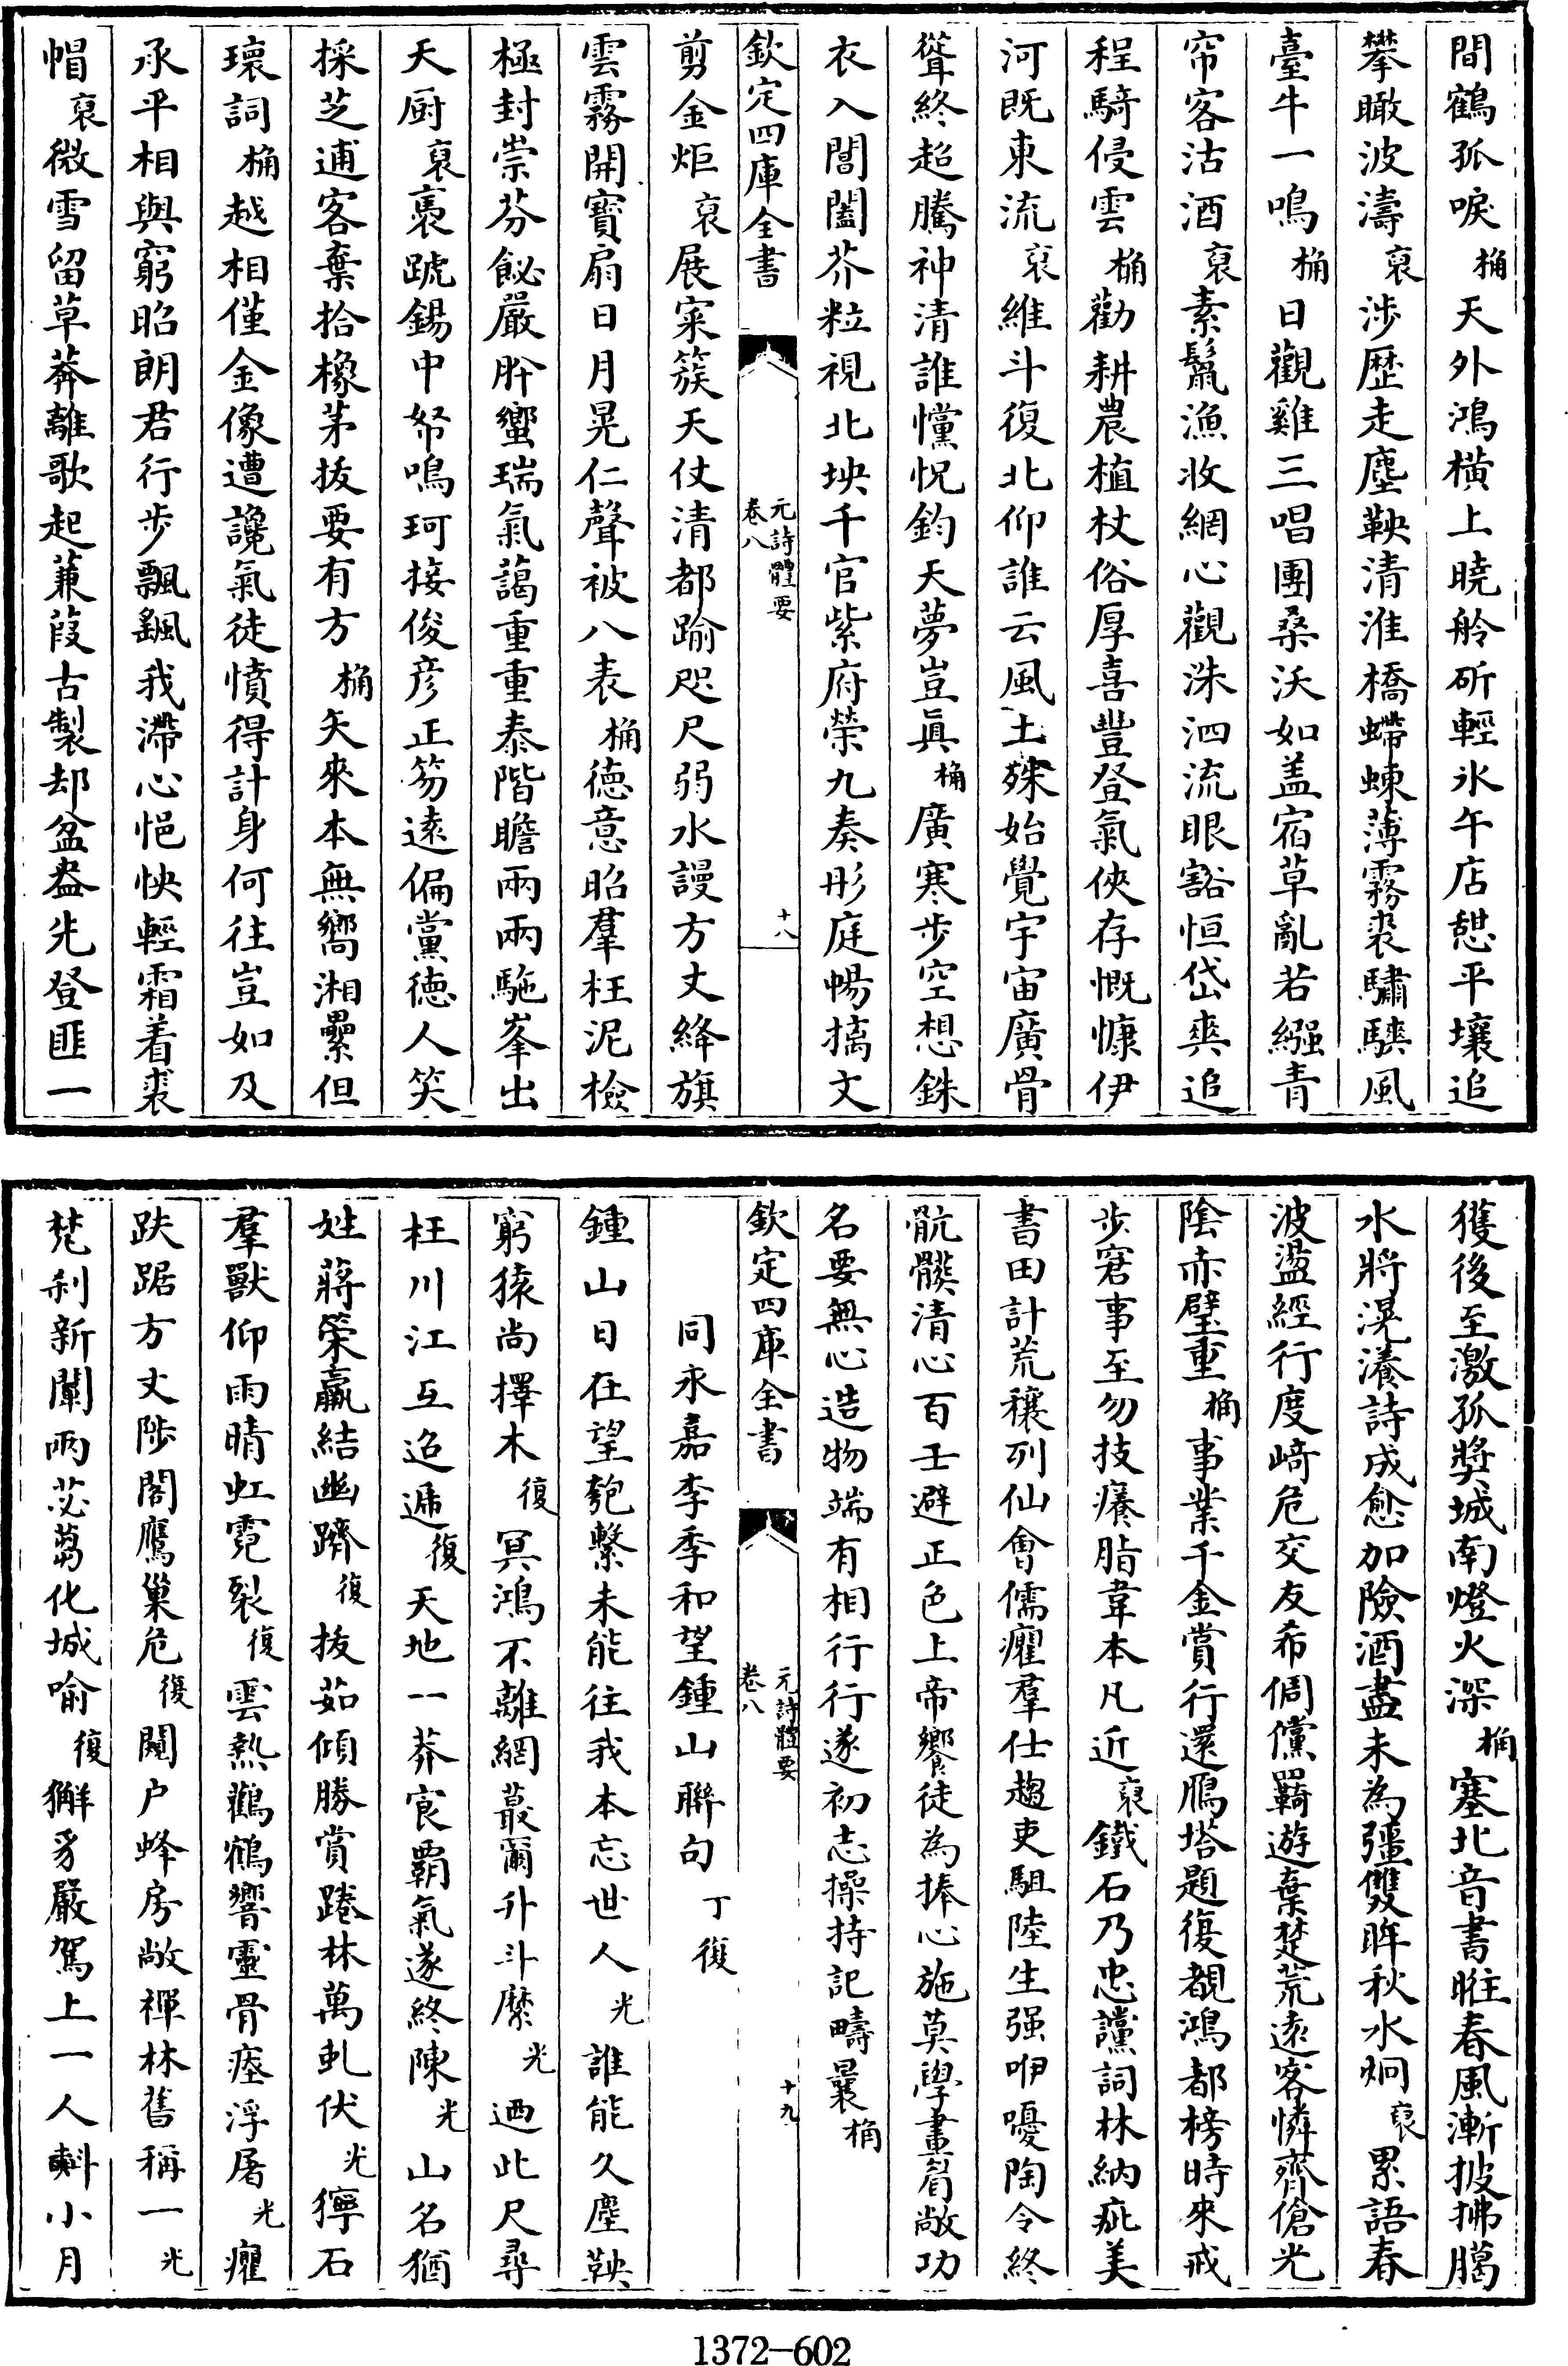 間鶴孤唳桷天外鴻橫上曉舲斫輕氷午店憇平壤追
攀瞰波濤裒涉歷走塵鞅清淮橋螮蝀薄霧裘驌騻風
臺牛一鳴桷日觀雞三唱團桑沃如盖宿草亂若繦青
帘客沽酒裒素鬣漁收網心觀洙泗流眼豁恒岱爽追
程騎侵雲桷勸耕農植杖俗厚喜豐登氣俠存慨慷伊
河既東流裒維斗復北仰誰云風土殊始覺宇宙廣骨
聳終超騰神清誰戃怳鈞天夢豈眞桷廣寒步空想銖
衣入閶闔芥粒視北坱千官紫府榮九奏彤庭暢摛文
欽定四庫全書
元詩體要
卷八
十八
剪金炬裒展寀簇天仗清都踰咫尺弱水謾方丈絳旗
雲霧開寶扇日月晃仁聲被八表桷德意昭羣枉泥檢
極封崇芬飶嚴肸蠁瑞氣藹重重泰階瞻兩兩駞峯出
天厨裒褭蹏錫中帑鳴珂接俊彦正笏遠偏黨德人笑
採芝逋客棄拾橡茅拔要有方桷矢來本無嚮湘纍但
瓌詞桷越相僅金像遭讒氣徒憤得計身何往豈如及
承平相與窮昭朗君行步飄颻我滯心悒怏輕霜着裘
帽裒微雪留草莽離歌起蒹葭古製却盆盎先登匪一
獲後至激孤奬城南燈火深桷塞北音書暀春風漸披拂臈
水將滉瀁詩成愈加險酒盡未為彊雙眸秋水炯裒累語春
波盪經行度﨑危交友希倜儻羇遊棄楚荒遠客憐齊傖光
陰赤壁重桷事業千金賞行還鴈塔題復覩鴻都榜時來戒
步窘事至勿技癢脂韋本凡近裒鐵石乃忠讜詞林納疵美
書田計荒穰列仙會儒癯羣仕趨吏駔陸生强咿嚘陶令終
骯髒清心百壬避正色上帝饗徒為捧心施莫學畫眉敞功
名要無心造物端有相行行遂初志操持記疇曩桷
欽定四庫全書
元詩體要
卷八
十九
同永嘉李季和望鍾山聯句丁復
鍾山日在望匏繫未能往我本忘世人光誰能久塵鞅
窮猿尚擇木復冥鴻不離網蕞爾升斗縻光迺此尺尋
枉川江互迢遞復天地一莽㝗覇氣遂終陳光山名猶
姓蔣榮贏結幽躋復拔茹傾勝賞踡林萬虬伏光獰石
羣獸仰雨晴虹霓裂復雲熱鸛鶴響靈骨瘞浮屠光癯
趺踞方丈陟閣鷹巢危復闚户蜂房敞禪林舊稱一光
梵刹新闡兩苾蒭化城喻復獬豸嚴駕上一人㪺小月
1372-602